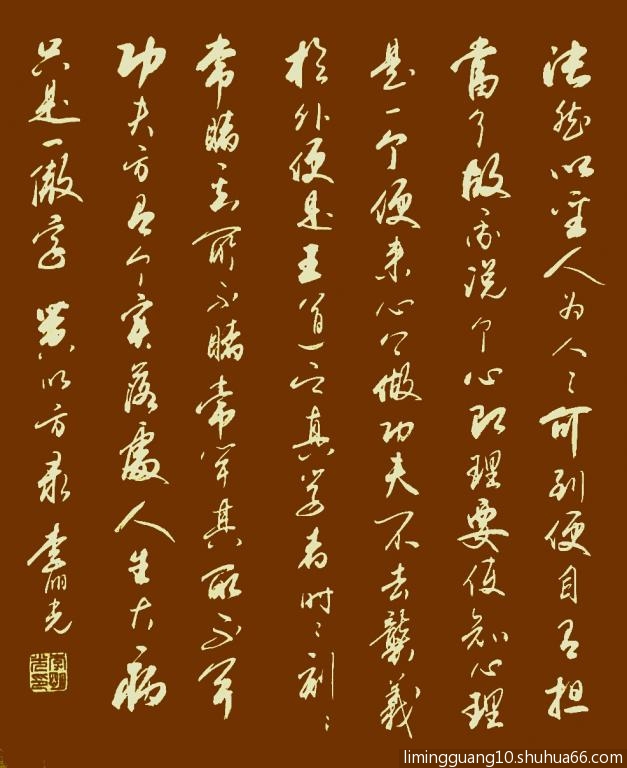 决然以聖人为人々可到便自有担
當了故我説个心即理要使知心理
是一个便来心上做功夫不去襲義
於外便是王道之真学者时々刻々
常睹其所不睹常闻其所不闻
功夫方有个实落處人生大病
只是一傲字 黄以方录 李明光
limingguang10.shuhua66.com